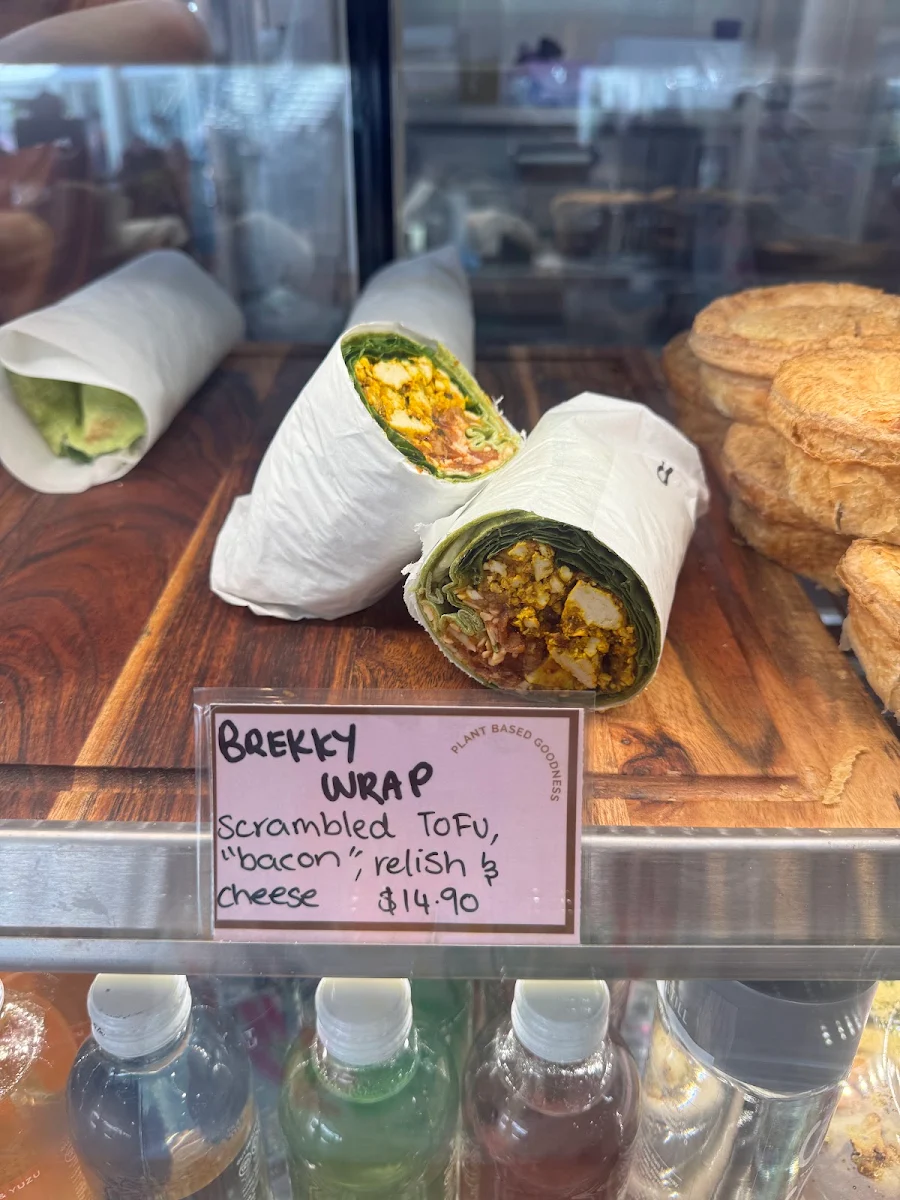 BREKKY
WRAP
PLANT BASED GOODNESS
scrambled TOFU,
"bacon", relish &
cheese $14.90
& YUZU